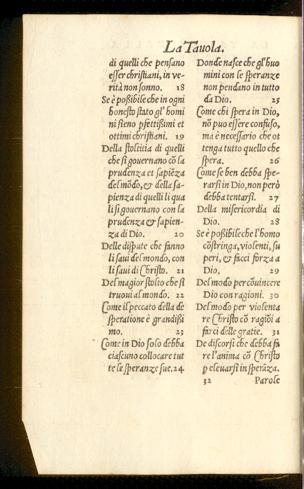 La Tauola.
di quelli che pensano
esser christiani, in ve-
rità non sonno. 18
Se è poßibile che in ogni
honesto stato gl'homi
ni sieno pfettißimi et
ottimi christiani. 19
Della stoltitia di quelli
che si gouernano cõ la
prudenza et sapiẽza
del mõdo, & della sa-
pienza di quelli li qua
li si gouernano con la
prudenza & sapien-
za di Dio. 20
Delle dispute che fanno
li saui del mondo, con
li saui di Christo. 21
Del magior stolto che si
truoui al mondo. 22
Come il peccato della de
speratione è grandißi
mo. 23
Come in Dio solo debba
ciascuno collocare tut
te le speranze sue. 24
Donde nasce che gl'huo
mini con le speranze
non pendano in tutto
da Dio. 25
Come chi spera in Dio,
nõ puo essere confuso,
ma è necessario che ot
tenga tutto quello che
spera. 26
Come se ben debba spe-
rarsi in Dio, non però
debba tentarsi. 27
Della misericordia di
Dio. 28
Se è poßibile che l'homo
cõstringa, violenti, su
peri, & facci forza a
Dio. 29
Del modo per cõuincere
Dio con ragioni. 30
Del modo per violenta
re Christo cõ ragiõi a
farci delle gratie. 31
De discorsi che debba fa
re l'anima cõ Christo
p eleuarsi in sperãza.
32 Parole